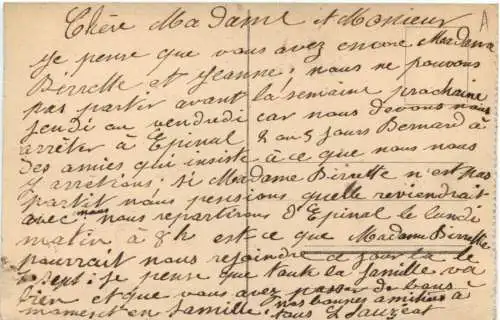 Chère Madame et Monsieur
Je pense que vous avez encore Madame
Pierrette et Jeanne, nous ne pouvons
pas partir avant la semaine prochaine
jeudi ou vendredi car nous devons nous
arrêter à Epinal 2 ou 3 jours Bernard à
des amies qui insiste à ce que nous nous
y arrêtions; si Madame Pierrette n'est pas
partit nous pensions quelle reviendrait
avec nous nous repartirons d'Epinal le lundi
matin à 8h est ce que Madame Pierrette
pourrait nous rejoindre à jour la le
sept: je pense que toute la famille va
bien et que vous avez passer de bons
moment en famille: nos bonnes amitiés à
tous